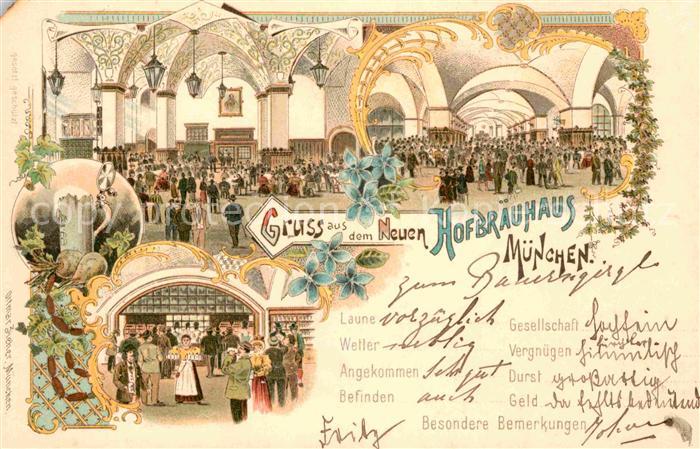 Gruss aus dem Neuen Hofbräuhaus
München.
zum Bauerngirgl
Laune vorzüglich
Wetter
Angekommen sehr gut
Befinden auch
Gesellschaft hochfein
Vergnügen himmlisch
Durst großartig
Geld da fehlts bedeutend
Besondere Bemerkungen
Fritz